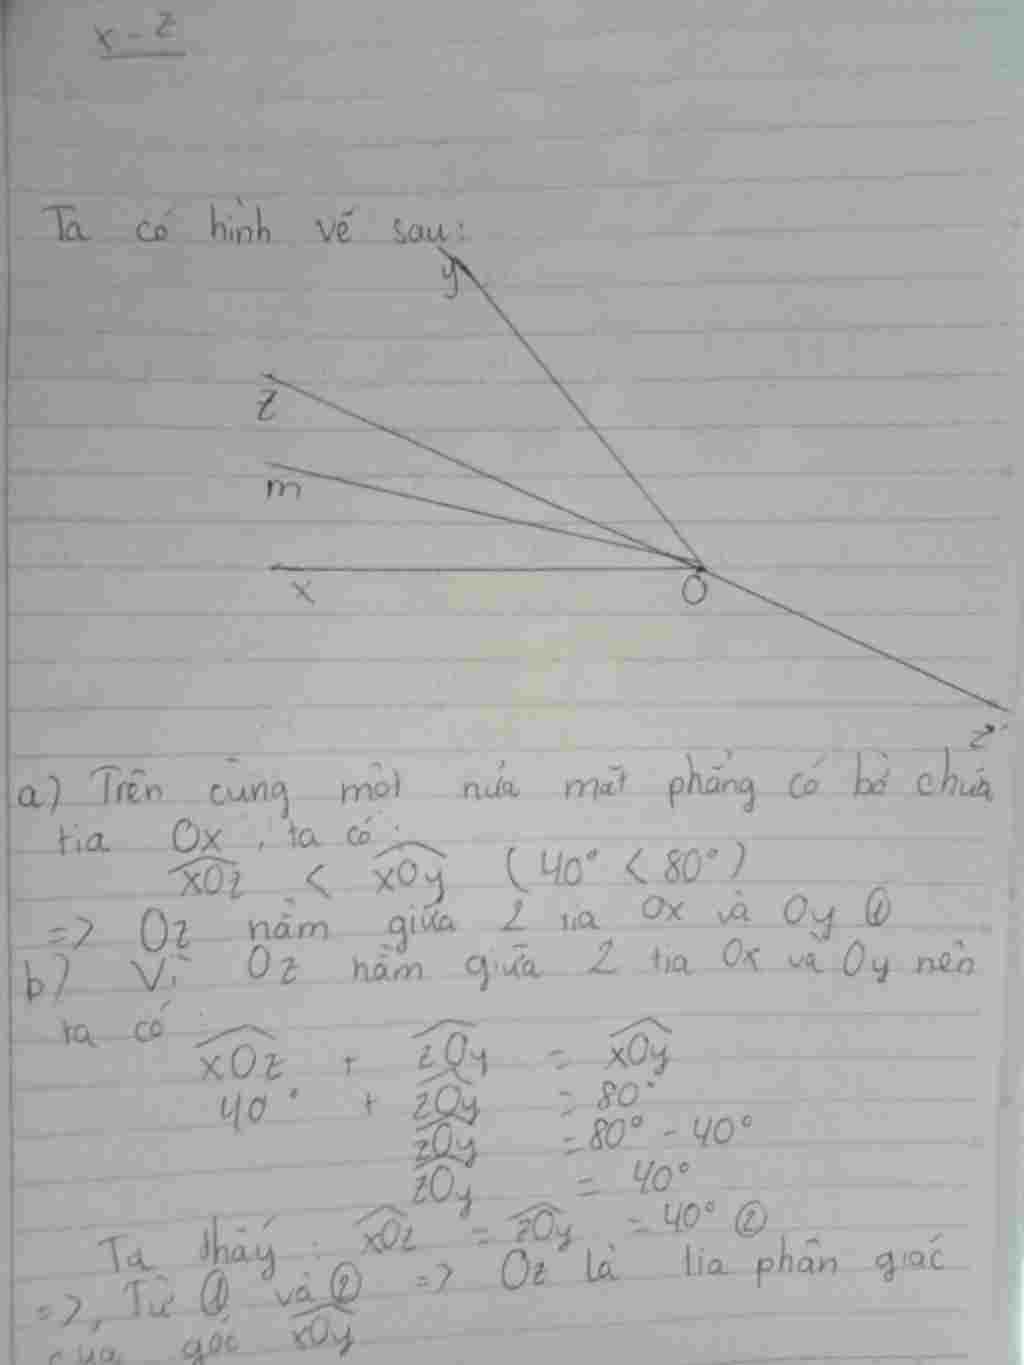 x - z
Ta có hình vẽ sau:
y
z
m
x
O
z'
a) Trên cùng một nửa mặt phẳng có bờ chứa
tia Ox, ta có:
xOz < xOy (40° < 80°)
=> Oz nằm giữa 2 tia Ox và Oy ①
b) Vì Oz nằm giữa 2 tia Ox và Oy nên
ta có
xOz + zOy = xOy
40° + zOy = 80°
zOy = 80° - 40°
zOy = 40°
Ta thấy: xOz = zOy = 40° ②
=>, Từ ① và ② => Oz là tia phân giác
của góc xOy